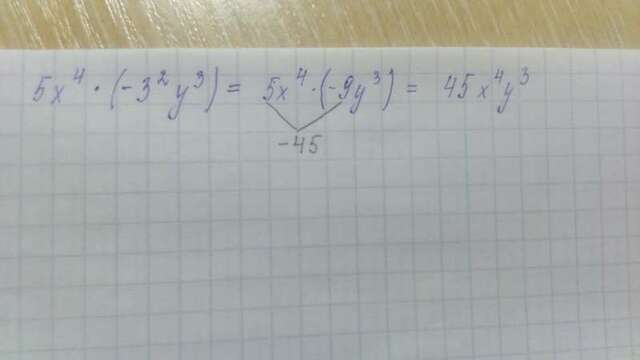 5x⁴ · (-3²y³) = 5x⁴ · (-9y³) = 45x⁴y³
-45